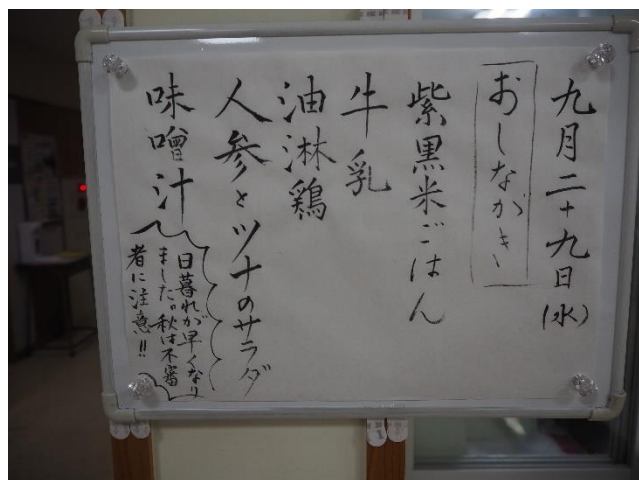 九月二十九日(水)
おしながき
紫黒米ごはん
牛乳
油淋鶏
人参とツナのサラダ
味噌汁
日暮れが早くなり
ました。秋は不審
者に注意!!